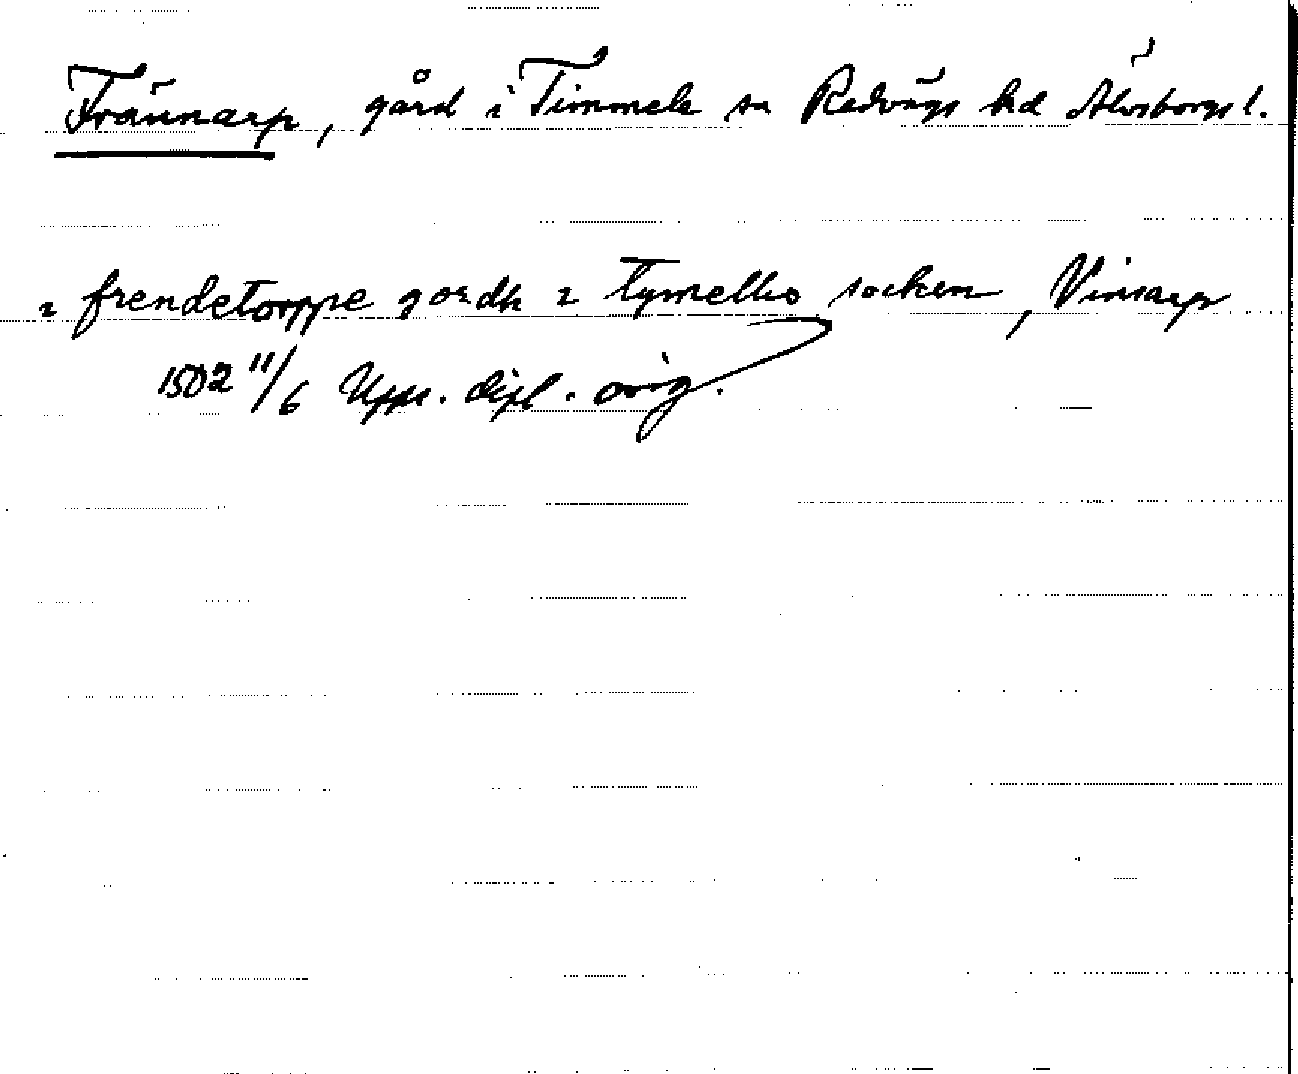 Frännarp, gård i Timmele sn Redvägs hd Älvsborgs l.
i frendetorppe gordh i tymelho socken, Vinsarp
1502 11/6 Upps. dipl. orig.